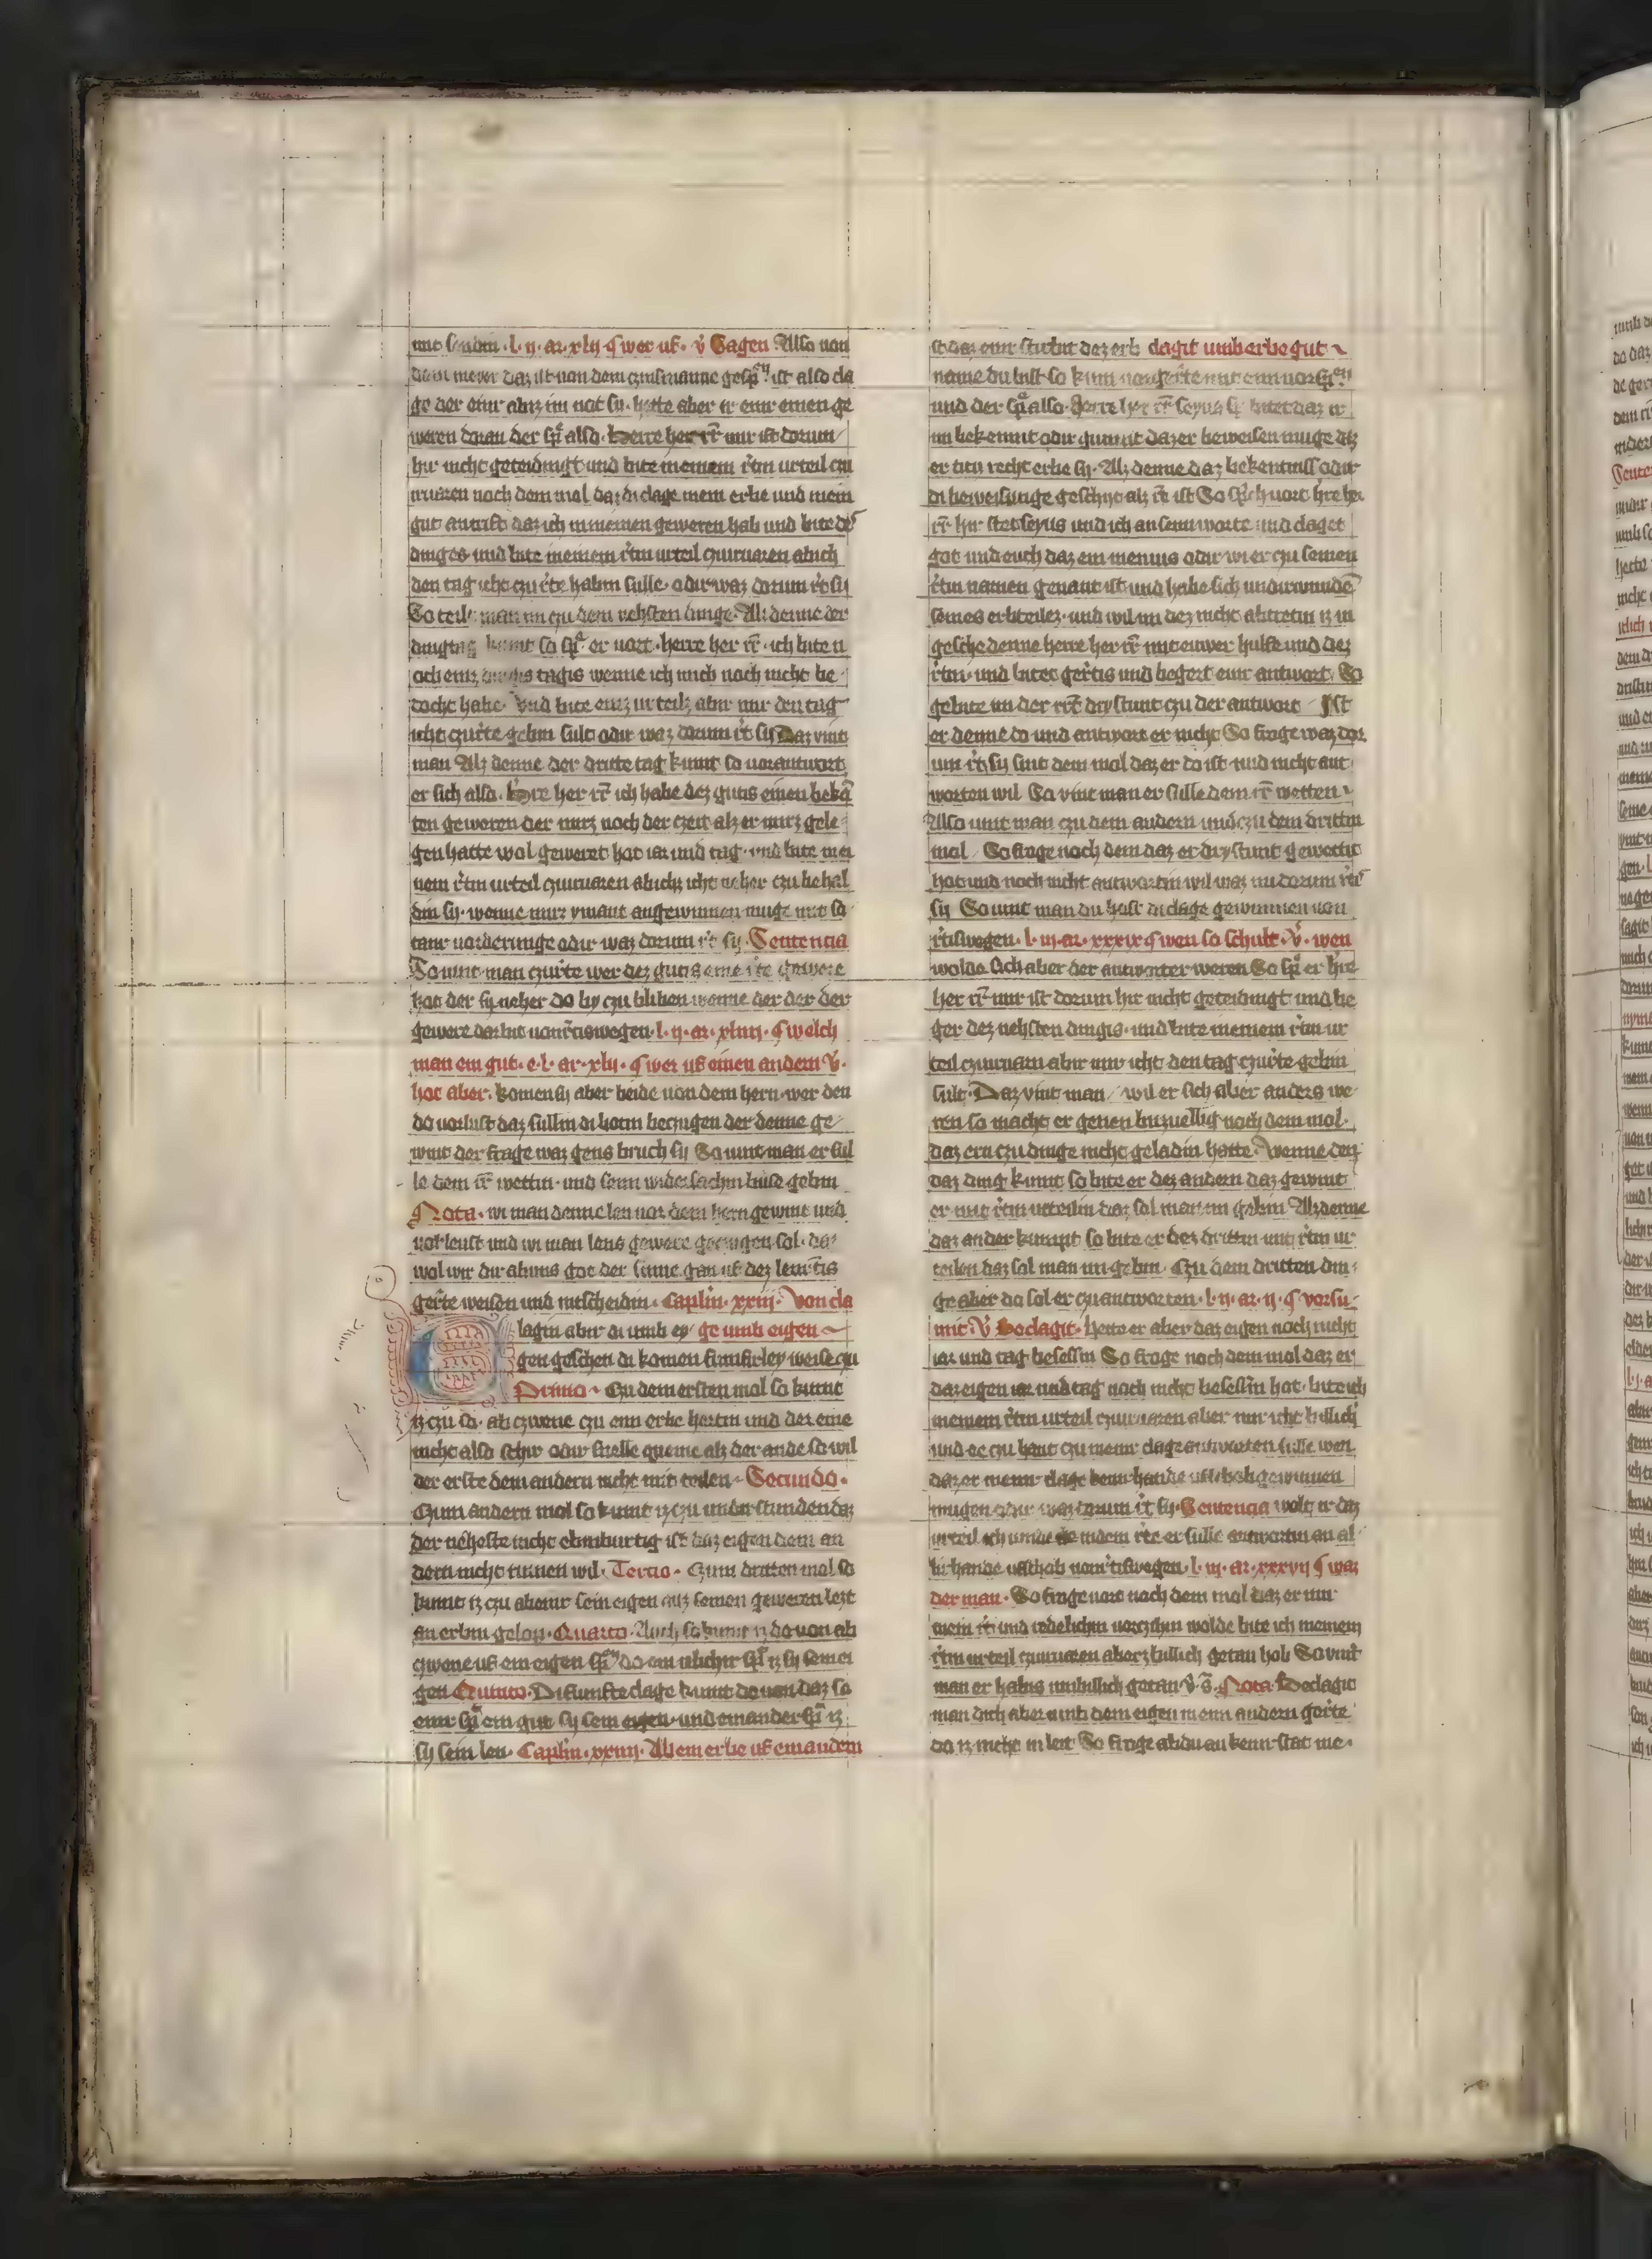 mit sendin · l · ij · ar · xlij · ¶ wer uf · v̾ Sagen Also von
dem meyer daz ist von dem czinsmanne gesp͛ ist also cla
ge der einr abirz im not sy · hette aber er einr einen ge
weren doran der sp͛ also · herre her rr̄ mir ist dorum
hir nicht geteidingt und bite meinem r̄tin urteil czu
uaren noch dem mol daz di clage mein erbe und mein
gut antrift daz ich in meinen geweren hab und bite dez
dinges und bite meinem r̄tin urteil czuuaren abich
den tag icht czur̄te habin sulle · odir waz dorum r̄t sij
So teilt man im czu dem nehsten dinge · Alz denne der
dingtag kumt so sp͛ er vort · herre her rr̄ · ich bite u
och einz dingis tagis wenne ich mich noch nicht be
docht habe · Und bite einz urteilz abir mir den tag
icht czur̄te gebin sult odir waz dorum r̄t sij Daz vint
man Alz denne der dritte tag kumt so vorantwort
er sich also · h̄re her rr̄ ich habe dez gutis einen bekā
ten geweren der mirz noch der czeit alz er mirz gele
gen hatte wol geweret hat iar und tag · und bite mei
nem r̄tin urteil czuuaren abichz icht neher czu behal
din sij · wenne mirz ymant angewinnen muge mit so
tanr vorderunge odir waz dorum r̄t sij · Sentencia
So vint man czur̄te wer dez gutis eine r̄te gewere
hat der sy neher do by czu bliben wenne der der der
gewere darbit von r̄tiswegen · l · ij · ar · xliiij · ¶ welch
man ein gut · e · l · ar · xlij · ¶ wer uf einen andern v̾ ·
hot aber · komen sij aber beide von dem hern · wer den
do vorlust daz sullin di botin beczugen der denne ge
wint der frage waz gens bruch sij So vint man er sul
le dem rr̄ wettin · und seinn widersachin buse gebin
Nota · wi man denne len vor dem hern gewint und
vorleust und wi man lens gewere geczugen sol · da
wol wir dir abuns got der sinne gan uf dez lenr̄tis
ger̄te weisen und intscheidin · Caplin · xxiij · Von cla
lagin abir di umb ey ge umb eigen
gen geschen di komen funfirley weise czu
Primo · Czu dem ersten mol so kumt
iz czu so · ab czwene czu einn erbe hortin und der eine
nicht also schir odir snelle queme alz der ande so wil
der erste dem andern nicht mit teilen · Secundo ·
Czum andern mol so kumt iz czu undirstunden daz
der neheste nicht ebinburtig ist daz eigen dem an
dern nicht rumen wil · Tercio · Czum dritten mol so
kumt iz czu abeinr sein eigen auz seinen geweren lezt
an erbin gelop · Quarto · Auch so kumt iz do von ab
czwene uf ein eigen sp͛ do ein iclichir sp͛ iz sij sein ei
gen Quinto · Di funfte clage kumt do von daz so
einr sp͛ ein gut sij sein eigen · und ein ander sp͛ iz
sij sein len · Caplin · xxiiij · Ab ein erbe uf ein andern
st daz einr stirbit dez erb clagit umb erbe gut
name du bist so kum vor ger̄te mit einn vorsp͛
und der sp͛ also · Herre her rr̄ seyns sp͛ bitet daz ir
im bekennit odir gunnit daz er beweisen muge daz
er czu recht erbe sij · Alz denne daz bekentniss odir
di beweisunge geschyt alz r̄t ist So sp͛ich vort h̄re her
rr̄ hir stet seyns und ich an seinn worte und claget
got und euch daz ein menius odir wi er czu seinen
r̄tin namen genant ist und habe sich undirwundē
seines erbteilez · und wil im dez nicht abtretin iz in
gesche denne herre her rr̄ mit euwer hulfe und dez
r̄tin · und bitet ger̄tis und begert einr antwort · So
gebite im der rr̄t drystunt czu der antwort · Ist
er denne do und antwort er nicht So froge waz dor
um r̄t sij sint dem mol daz er do ist und nicht ant
worten wil So vint man er sulle dem rr̄ wetten
Also vint man czu dem andern und czu dem drittin
mol · So froge noch dem daz er drystunt gewettit
hot und noch nicht antwortin wil waz nu dorum r̄t
sij So vint man du host di clage gewunnen von
r̄tiswegen · l · iij · ar · xxxix ¶ wen so schult · v̾ · wen
wolde sich aber der antworter weren So sp͛ er h̄re
her rr̄ mir ist dorum hir nicht geteidingt und be
ger dez nehsten dingis · und bite meinem r̄tin ur
teil czuuarn abir mir icht den tag czur̄te gebin
sult · Daz vint man / wil er sich aber anders we
ren so macht er genen buzuellig noch dem mol ·
daz ern czu dinge nicht geladin hatte · Wenne den
daz ding kumt so bite er dez andern daz gewint
er mit r̄tin urteilin daz sol man im gebin Alz denne
daz ander kumpt so bite er dez drittin mit r̄tin ur
teilen daz sol man im gebin · Czu dem dritten din
ge aber do sol er czu antworten · l · ij · ar · ij · ¶ vorsu
mit · v̾ Beclagit · hette er aber daz eigen noch nicht
iar und tag besessin So froge noch dem mol daz er
daz eigen iar und tag noch nicht besessin hot · bite ich
meinem r̄tin urteil czuuaren aber mir icht billich
und ee czu hant czu meinr clage antworten sulle wen
daz er meinr clage keinr hande ufschob gewinnen
mugen odir waz dorum r̄t sij · Sentencia wolt ir daz
urteil ich vinde de indem r̄te er sulle antwortin an al
lir hande ufschob von r̄tiswegen · l · iij · ar · xxxvij ¶ waz
der man · So froge vort noch dem mol daz er mir
mein r̄t und redelichin vorczihin wolde bite ich meinem
r̄tin urteil czuuaren aberz billich getan hob So vint
man er habis unbillich getan v̾ s̄ · Nota · Beclagit
man dich aber umb dem eigen in einn andern ger̄te
do iz nicht in leit So froge abdu an keinr stat me ·